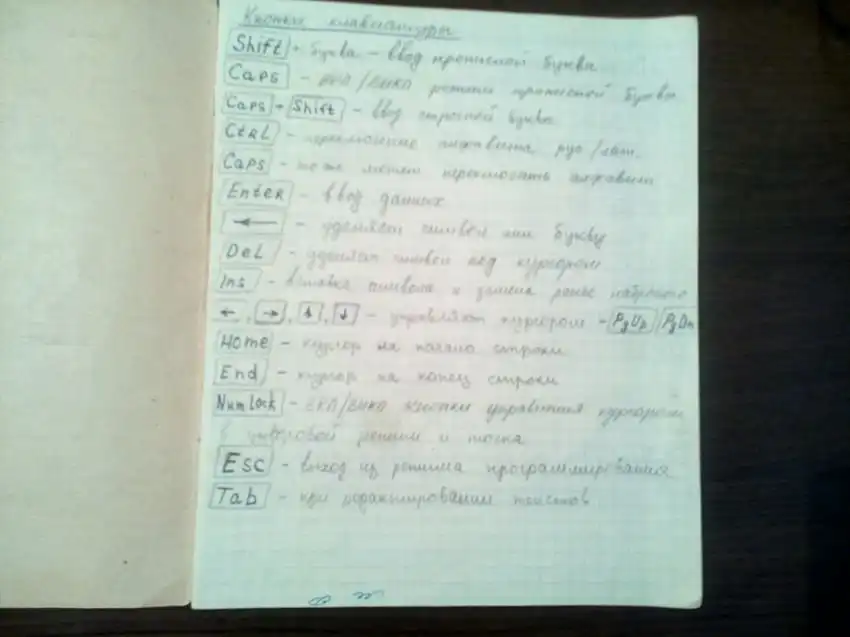 Кнопки клавиатуры
Shift + буква - ввод прописной буквы
Caps - ВКЛ/ВЫКЛ режима прописной буквы
Caps + Shift - ввод строчной буквы
CtRL - переключение алфавита рус/лат.
Caps - тоже может переключать алфавит
EnteR - ввод данных
← - удаляет символ или букву
DeL - удаляет символ под курсором
Ins - вставка символа и замена ранее набранного
←, →, ↑, ↓ - управляют курсором - PgUp PgDn
Home - курсор на начало строки
End - курсор на конец строки
NumLock - ВКЛ/ВЫКЛ кнопки управления курсором
в цифровой режим и точка
Esc - выход из режима программирования
Tab - при редактировании текстов